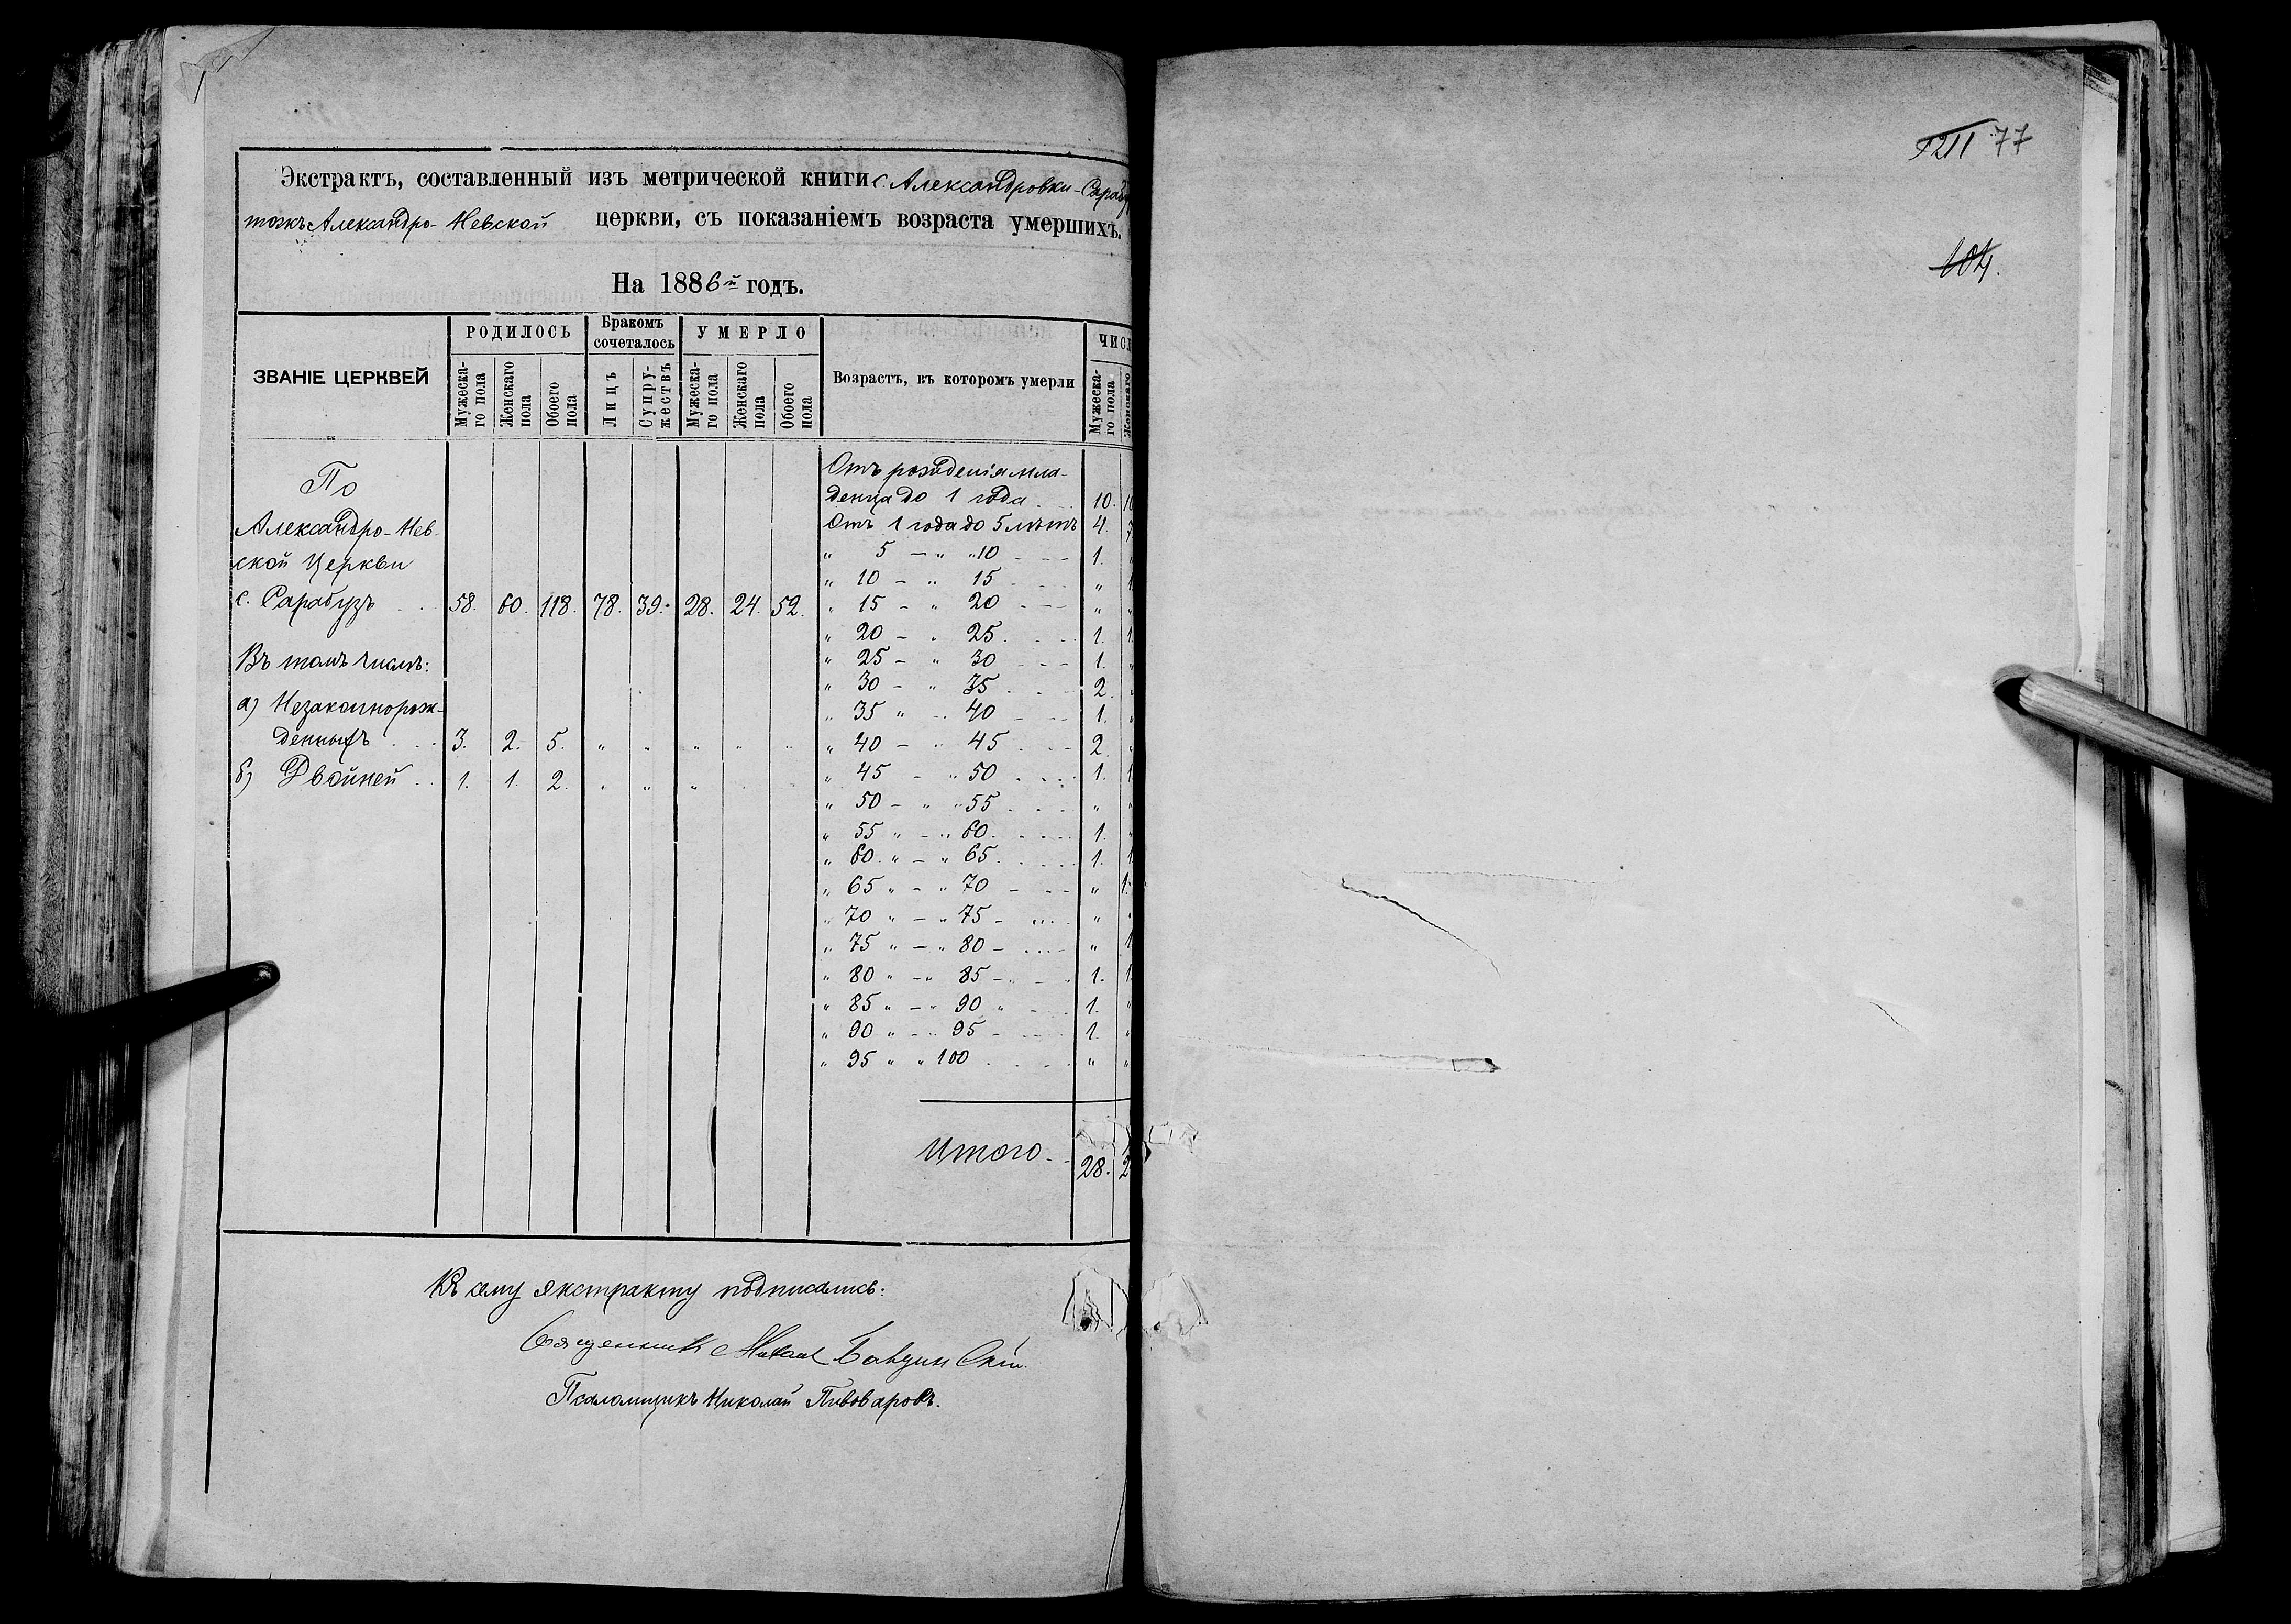 Экстрактъ, составленный изъ метрической книги с. Александровки-Сарабуз
тожъ Александро-Невской церкви, съ показаніемъ возраста умершихъ.
На 1886й годъ.
ЗВАНІЕ ЦЕРКВЕЙ
РОДИЛОСЬ
Мужеска-
го пола
Женскаго
пола
Обоего
пола
Бракомъ
сочеталось
Лицъ
Супру-
жествъ
УМЕРЛО
Мужеска-
го пола
Женскаго
пола
Обоего
пола
Возрастъ, въ которомъ умерли
ЧИСЛ
Мужеска-
го пола
Женскаго
По
Александро-Нев-
ской Церкви
с. Сарабузъ . . 58. 60. 118. 78. 39. 28. 24. 52.
Въ томъ числѣ:
а) Незаконнорож-
денныхъ . . . 3. 2. 5. „ „ „ „ „
б) Двойней . . 1. 1. 2. „ „ „ . .
Отъ рожденія мла-
денца до 1 года . . 10. 10
Отъ 1 года до 5 лѣтъ 4. 7
„ 5 – „ „ 10 - - - 1. „
„ 10 – „ 15 - - - „ 1
„ 15 – „ 20 - - - „ „
„ 20 – „ 25 . - - - 1. 1.
„ 25 – „ 30 - - - 1. „
„ 30 – „ 35 . - - 2. „
„ 35 „ – „ 40 - - - 1. „
„ 40 – „ 45 . - - 2. „
„ 45 – „ 50 . . . . 1. 1
„ 50 – „ „ 55 . . . „ „
„ 55 „ – „ 60 . . . . 1. „
„ 60 „ – „ 65 . . . . 1. 1
„ 65 „ – „ 70 - - - „ 1.
„ 70 „ – „ 75 - . . . „ „
„ 75 „ – „ 80 - . . . „ 1
„ 80 „ – „ 85 - - - 1. 1
„ 85 „ – „ 90 „ - . 1. „
„ 90 „ – „ 95 - - - 1. „
„ 95 „ „ 100 . . . . „ „
Итого - - 28. 2
Къ сему экстракту подписались:
Священникъ Михаил
Псаломщикъ Николай Пивоваровъ.
1211 77
104.